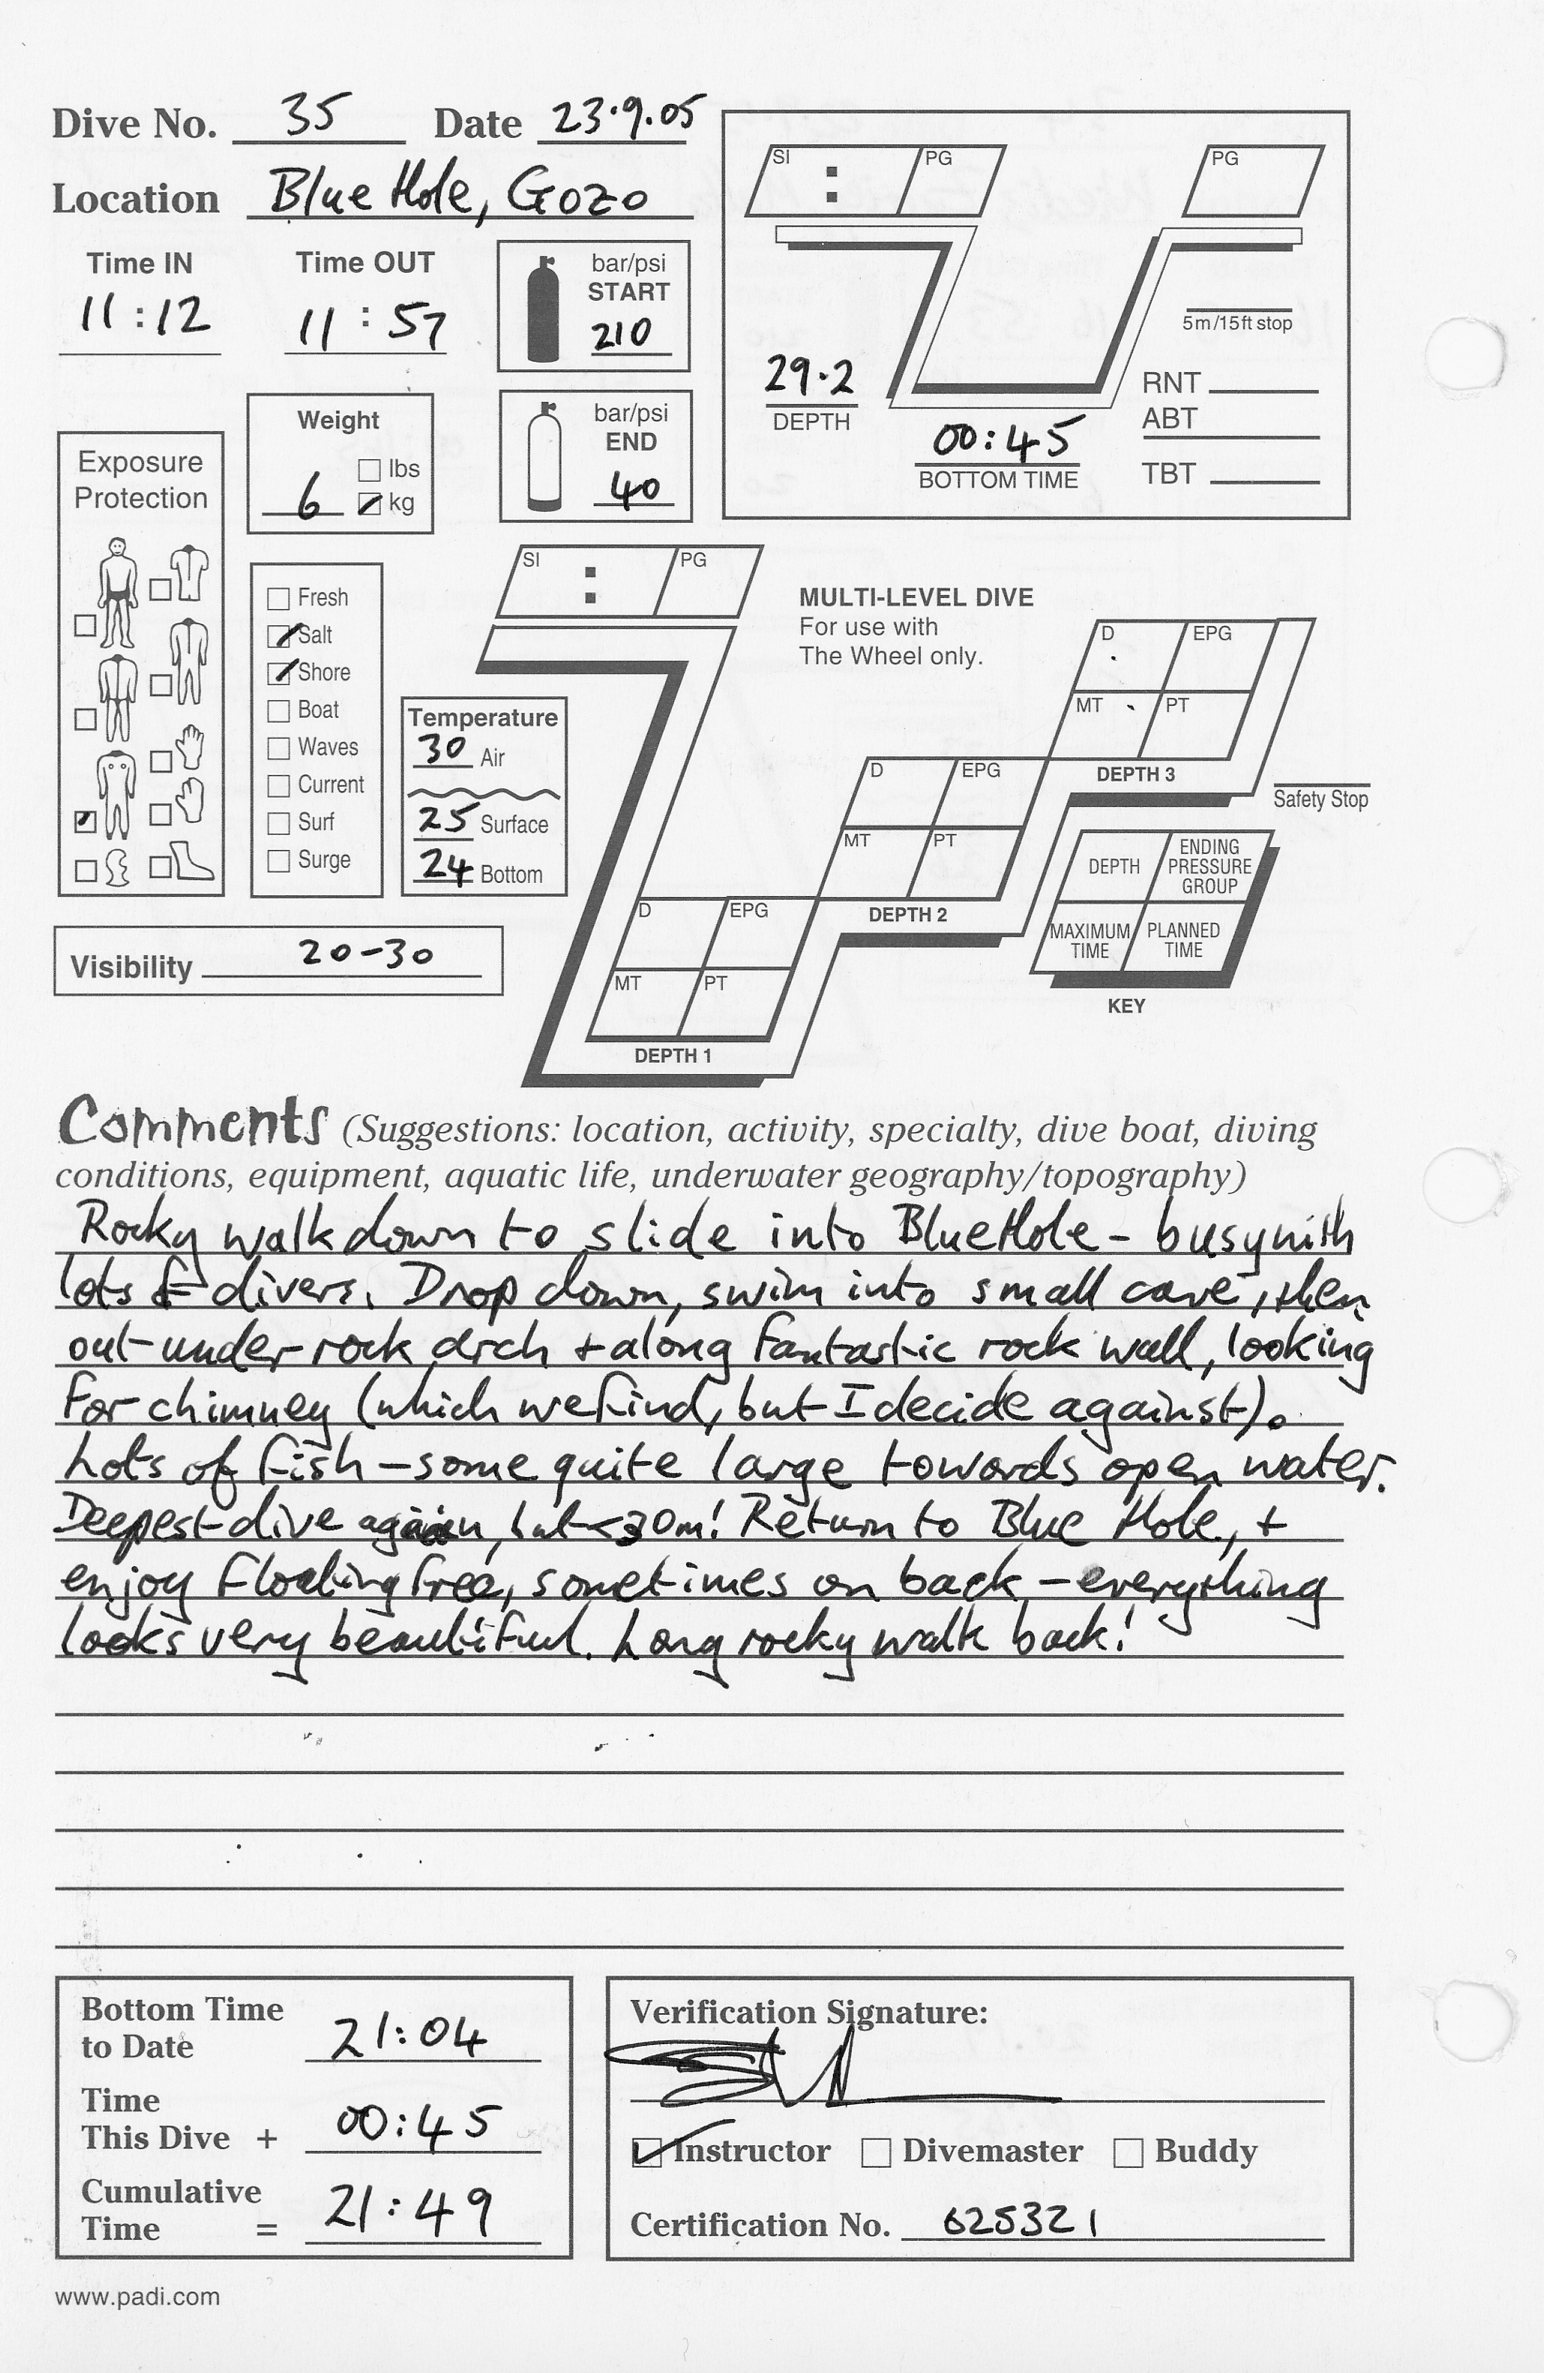 Dive No. 35 Date 23.9.05
Location Blue Hole, Gozo
Time IN
11:12
Time OUT
11:57
bar/psi
START
210
bar/psi
END
40
Weight
6
lbs
kg
Exposure
Protection
Fresh
Salt
Shore
Boat
Waves
Current
Surf
Surge
Temperature
30 Air
25 Surface
24 Bottom
Visibility 20-30
SI : PG
PG
5m/15ft stop
29.2
DEPTH
00:45
BOTTOM TIME
RNT
ABT
TBT
SI : PG
MULTI-LEVEL DIVE
For use with
The Wheel only.
D EPG
MT PT
DEPTH 1
D EPG
MT PT
DEPTH 2
D EPG
MT PT
DEPTH 3
Safety Stop
DEPTH
ENDING
PRESSURE
GROUP
MAXIMUM
TIME
PLANNED
TIME
KEY
Comments (Suggestions: location, activity, specialty, dive boat, diving
conditions, equipment, aquatic life, underwater geography/topography)
Rocky walk down to slide into Blue Hole - busy with
lots of divers. Drop down, swim into small cave, then
out under rock arch + along fantastic rock wall, looking
for chimney (which we find, but I decide against).
Lots of fish - some quite large towards open water.
Deepest dive again, but <30m! Return to Blue Hole, +
enjoy floating free, sometimes on back - everything
looks very beautiful. Long rocky walk back!
Bottom Time
to Date 21:04
Time
This Dive + 00:45
Cumulative
Time = 21:49
Verification Signature:
Instructor Divemaster Buddy
Certification No. 625321
www.padi.com